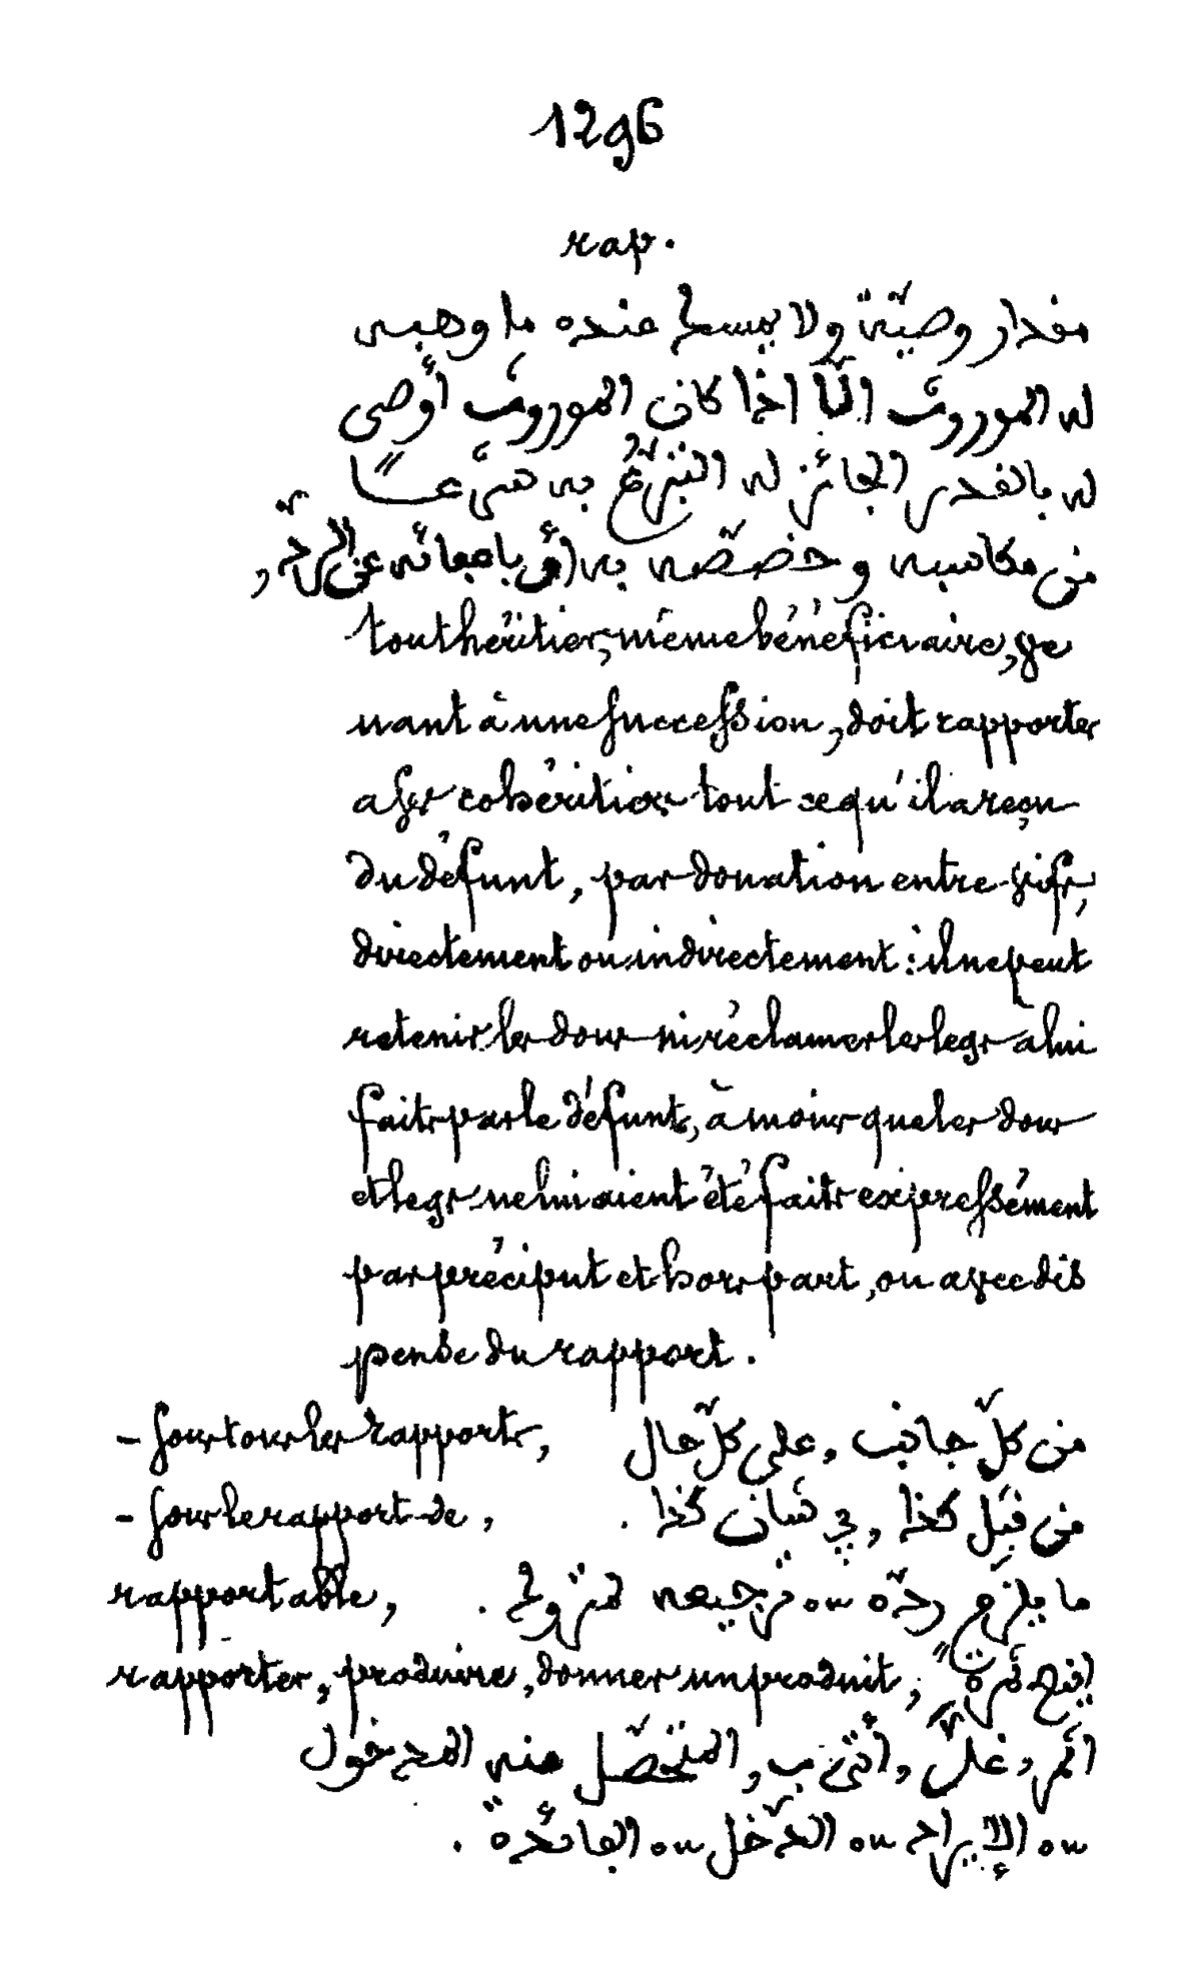 1296
rap.
مقدار وصيّته ولا يمسك عنده ما وهبه
له الموروث إلّا إذا كان الموروث أوصى
له بالقدر الجائز له التبرّع به متبرّعًا
من مكاسبه وخصّصه به أو بإعفائه عن الردّ,
tout héritier, même bénéficiaire, ve
nant à une succession, doit rapporter
a ses cohéritiers tout ce qu'il a reçu
du défunt, par donation entre-vifs,
directement ou indirectement: il ne peut
retenir les dons ni réclamer les legs à lui
faits par le défunt, à moins que les dons
et legs ne lui aient été faits expressément
par préciput et hors part, ou avec dis
pense du rapport.
- sous tous les rapports, من كلّ جانب, على كلّ حال
- sous le rapport de, من قبل كذا, في شان كذا.
rapportable, ما يلزم ردّه ou ترجيعه لمتروك.
rapporter, produire, donner un produit; انتج ثمرة,
اثمر, غلّ, أتى ب, المتحصّل منه المدخول
ou الإيراد ou الدّخل ou الفائدة.